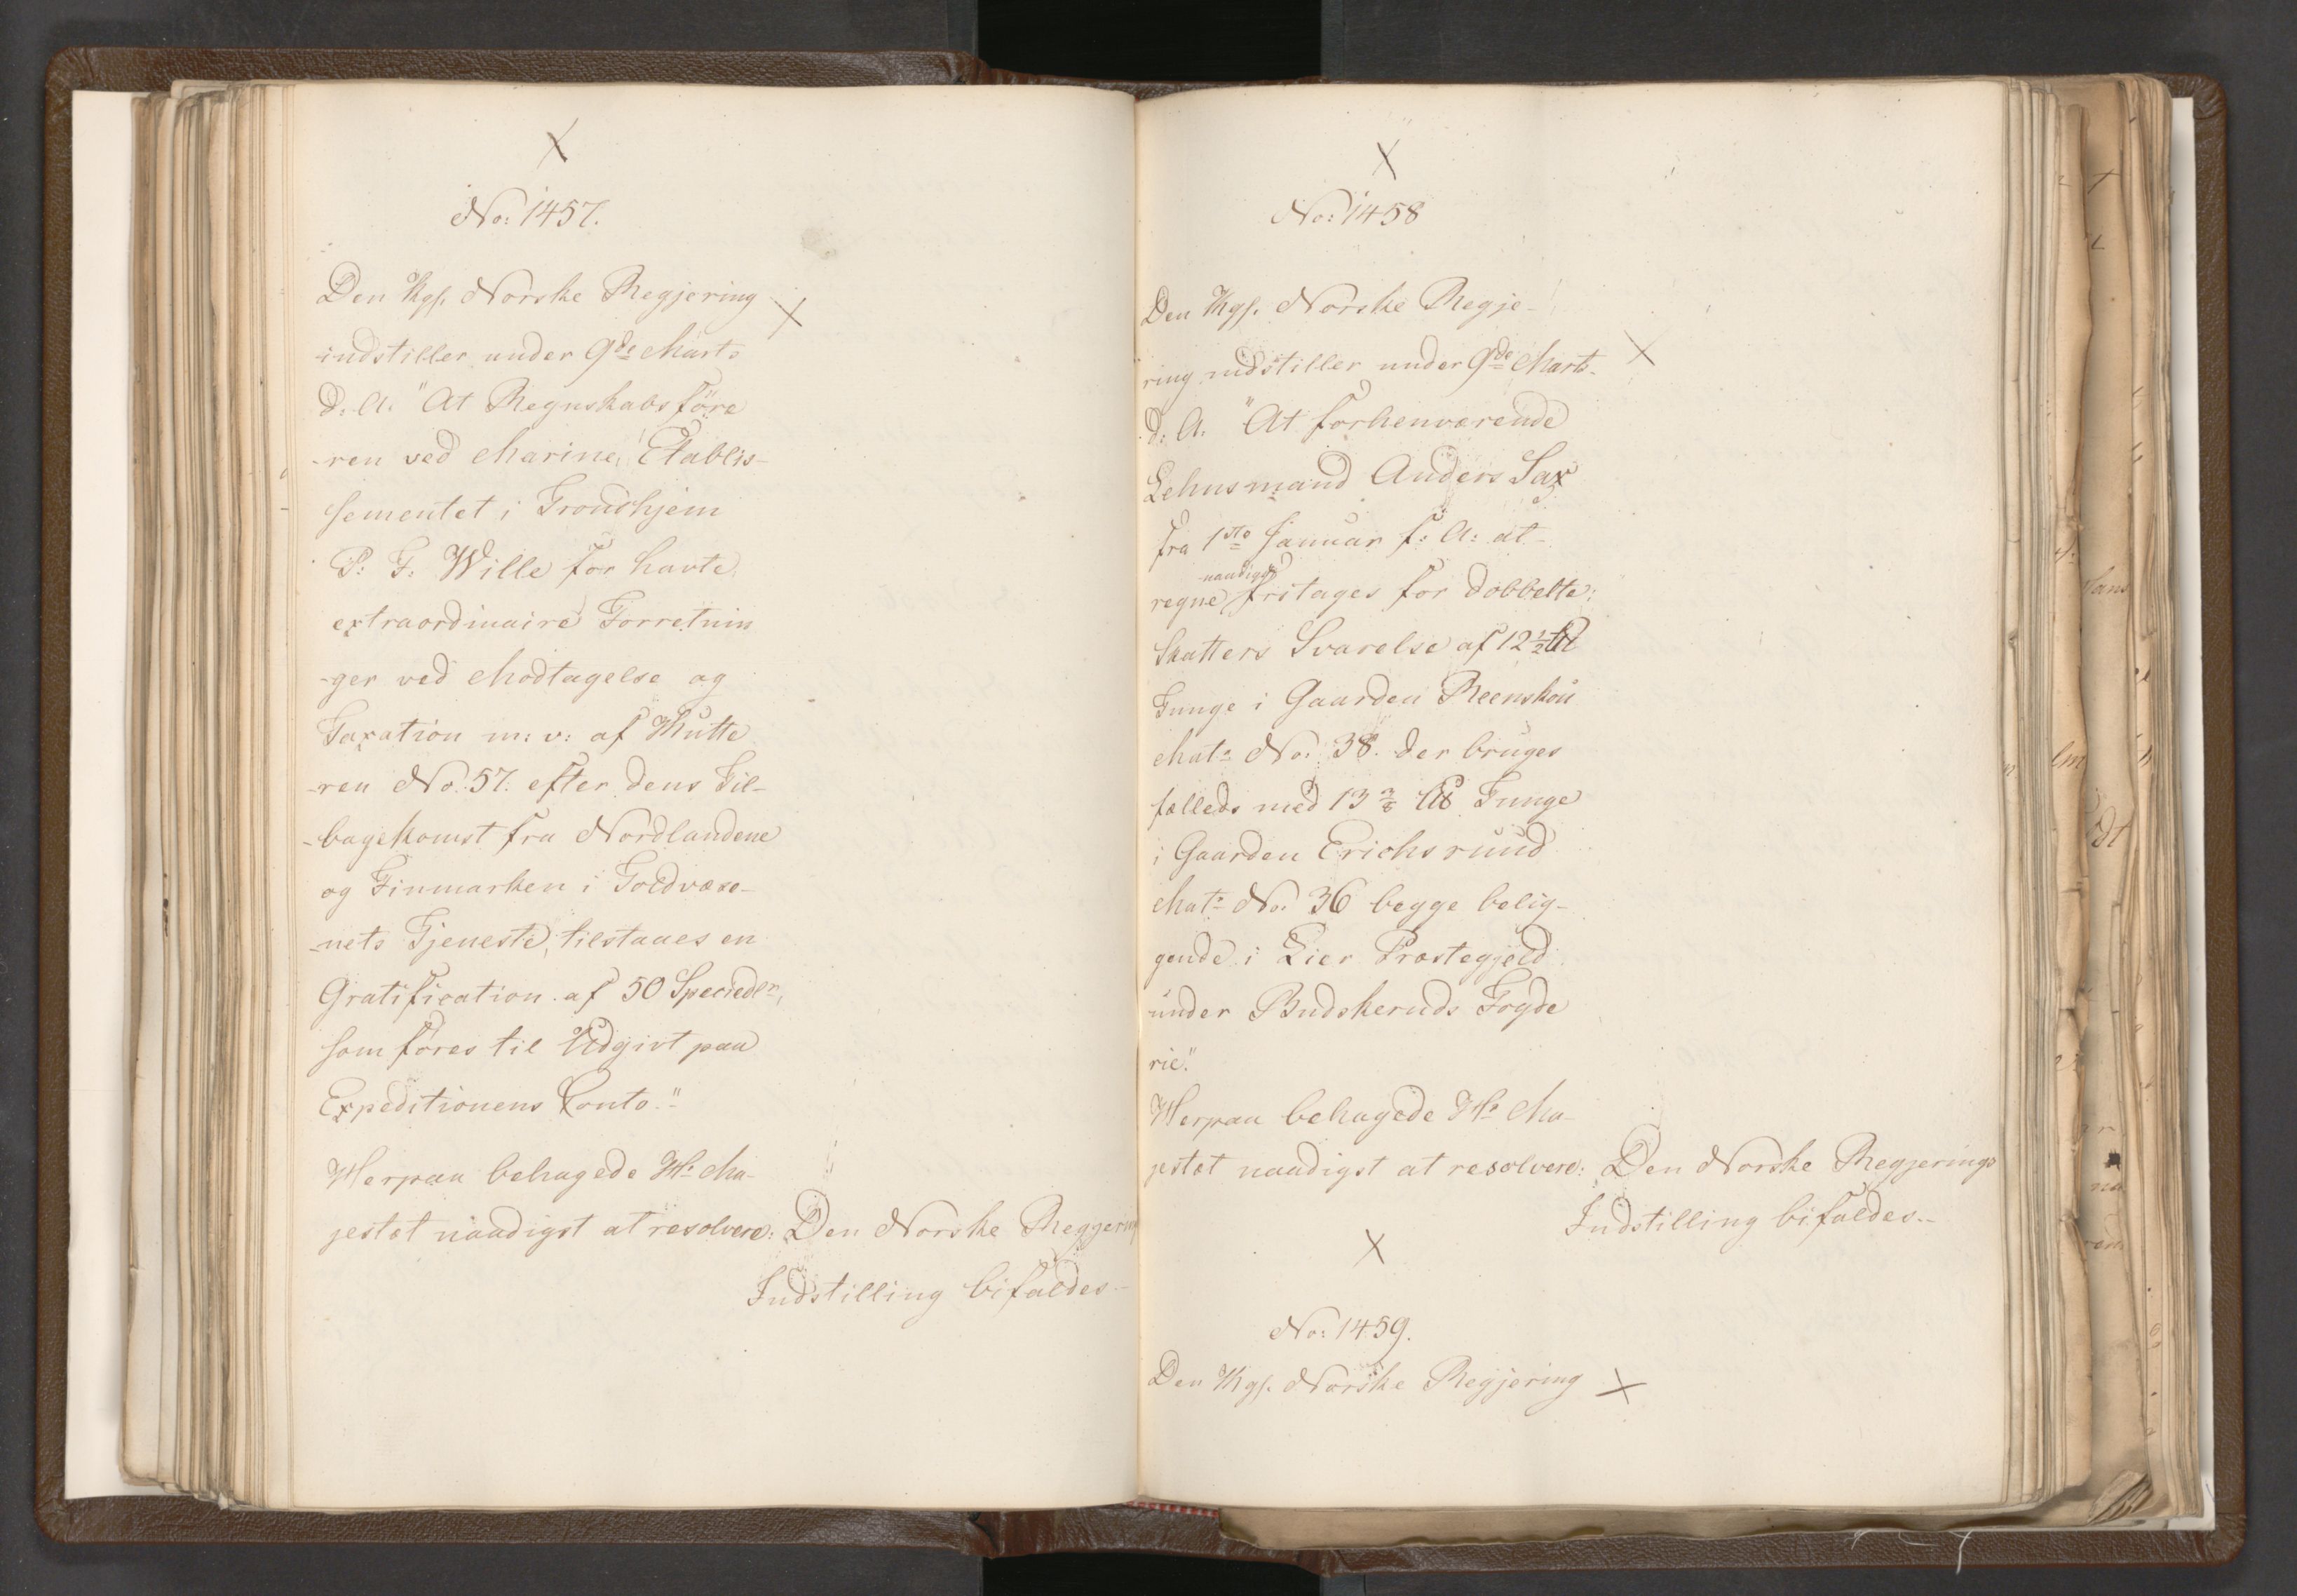 X
No: 1457.
Den Kgl. Norske Regjering X
indstiller under 9de Marts
d: A: "At Regnskabsføre
-ren ved Marine, Etablis-
sementet i Trondhjem
P: F: Wille for havte
extraordinaire Forretnin
-ger ved Modtagelse og
Taxation m: v: af Kutte
-ren No: 57. efter dens Til-
-bagekomst fra Nordlandene
og Finmarken i Toldvæse-
-nets Tjeneste, tilstaaes en
Gratification af 50 Speciedlr,
som føres til Udgivt paa
Expeditionens Conto."
Herpaa behagede Hs Ma-
jestæt naadigst at resolvere: Den Norske Regjering
Indstilling bifaldes.-
X
No: 1458
Den Kgl. Norske Regje-
ring indstiller under 9de Marts X
d: A: "At forhenværende
Lehnsmand Anders Sax
fra 1ste Januar f: A: at
naadigst
regne fritages for dobbelte
Skatters Svarelse af 12 1/2 ℔
Tunge i Gaarden Reenskou
Mat: No: 38. der bruges
fælleds med 13 3/8 ℔ Tunge
i Gaarden Erichsruud
Mat: No: 36 begge belig-
gende i Lier Præstegjeld
under Budskeruds Fogde
rie."
Herpaa behagede Hs Ma-
jestæt naadigst at resolvere: Den Norske Regjerings
Indstilling bifaldes.-
X
No: 1459.
Den Kgl. Norske Regjering X